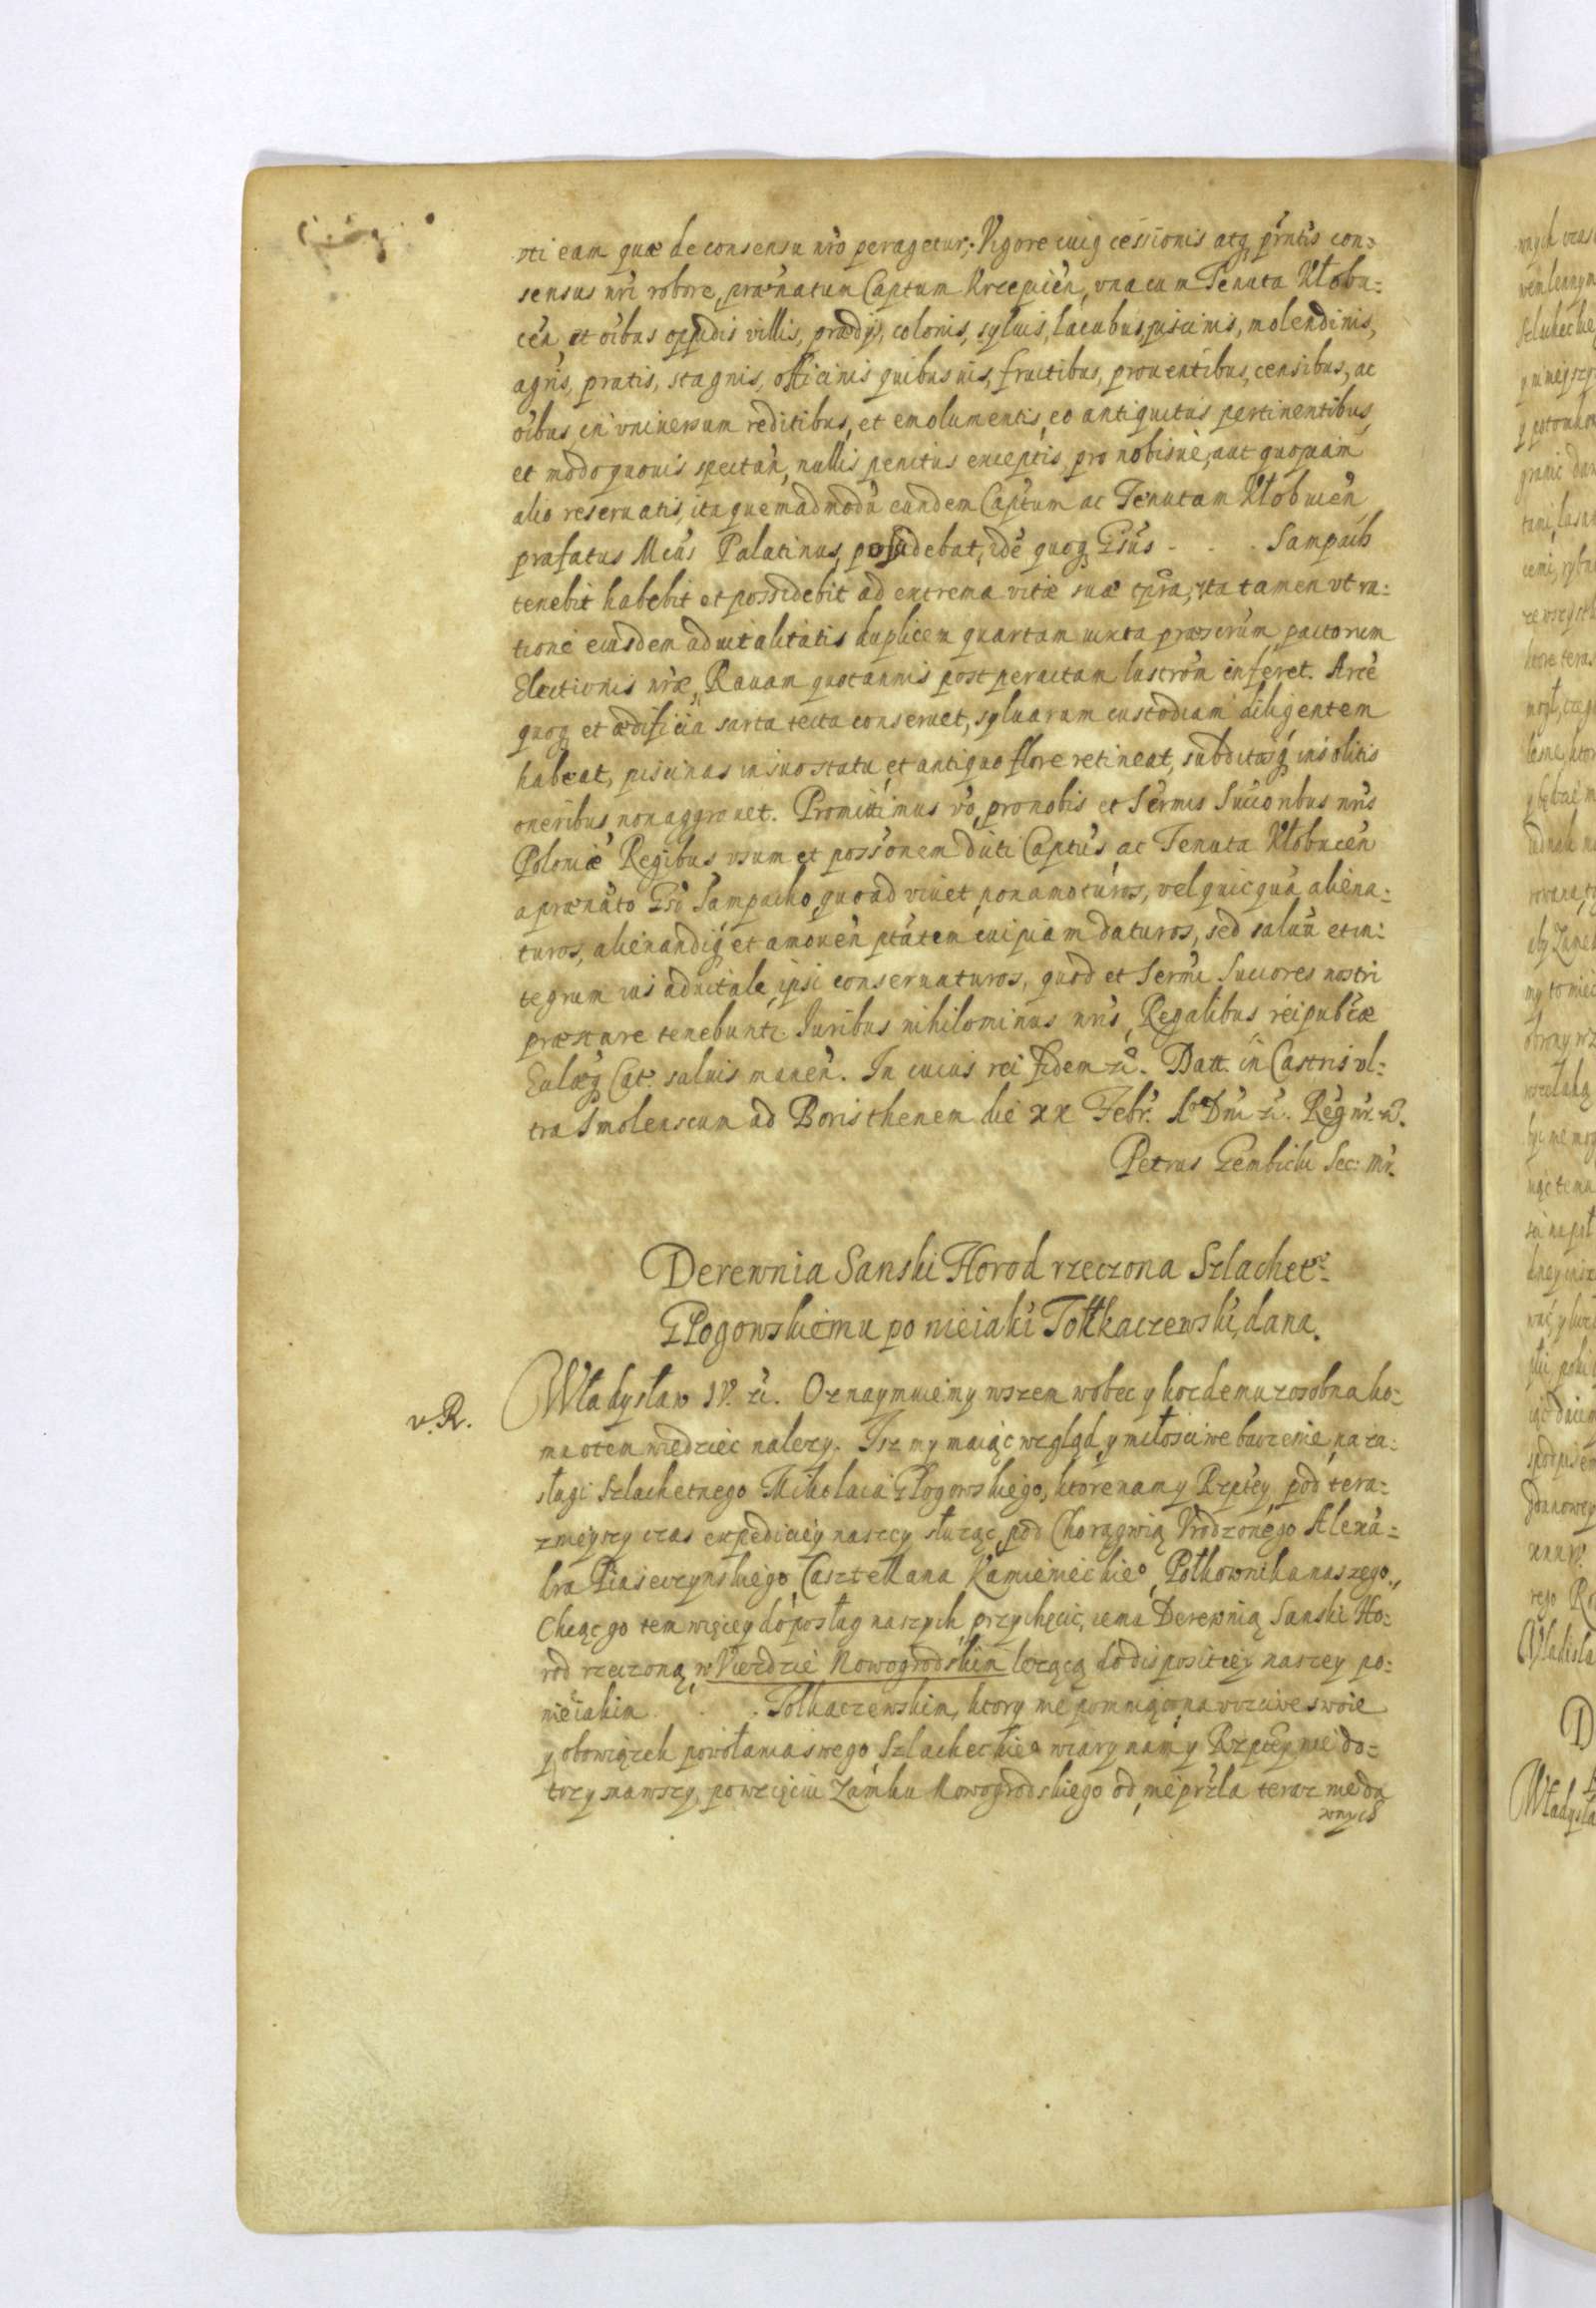 vti eam quæ de consensu nr̃o peragetur; Vigore cuiq cessionis atq pr̃ntis con=
sensus nr̃i robore, prænatum Captum Krzepicen̄, vna cum Tenuta Kłobu=
cen̄, et oĩbus oppidis villis, prædijs, colonis, syluis, lacubus, piscinis, molendinis,
agris, pratis, stagnis, officinis quibusuis, fructibus, prouentibus, censibus, ac
oĩbus in vniuersum reditibus, et emolumentis, eo antiquitus pertinentibus,
et modo quouis spectan̄, nullis penitus exceptis, pro nobisue, aut quopiam
alio reseruatis, ita quemadmodũ eundem Captum ac Tenutam Kłobucen̄
præfatus Mcus Palatinus, possidebat, idẽ quoq Gsus . . . Sampach
tenebit habebit et possidebit ad extrema vitæ suæ tp̃ra, ita tamen vt ra=
tione eiusdem aduitalitatis duplicem quartam iuxta præscrũm pactorum
Electionis nr̃æ, Rauam quotannis post peractam lustron̄ inferet. Arcẽ
quoq et ædificia sarta tecta conseruet, syluarum custodiam diligentem
habeat, piscinas in suo statu, et antiquo flore retineat, subditosq insolitis
oneribus non aggrauet. Promittimus vo, pro nobis et Sermis Succoribus nr̃is
Poloniæ Regibus vsum et possonem dicti Captus ac Tenuta Kłobucen̄
a prænato Gso Sampacho, quoad viuet, non amoturos, vel quicquã aliena=
turos, alienandiq et amouen̄ ptatem cuipiam daturos, sed saluũ et in=
tegrum ius aduitale ipsi conseruaturos, quod et Sermi Succores nostri
præstare tenebuntr. Iuribus nihilominus nr̃is, Regalibus reipubcæ
Ecclæq Cat. saluis manen̄. In cuius rei fidem ec̃. Datt. in Castris vl=
tra Smolenscum ad Boristhenem die XX Febr. Ao Dni ec̃. Regnr. ec̃.
Petrus Gembicki Sec: Mr.
Derewnia Sanski Horod rzeczona Szlachetne
Głogowskiemu po nieiaki Tołkaczewski, dana.
v. R.
Władysław IV. ec̃. Oznaymuiemy wszem wobec y kozdemu zosobna ko=
mu o tem wiedziec nalezy. Isz my maiąc wzgląd, y miłosciwe baczenie, na za=
sługi Szlachetnego Mikołaia Głogowskiego, ktore nam y Rzptey, pod tera=
znieyszy czas expediciey naszey słuząc, pod Chorągwią Vrodzonego Alexã=
dra Piaseczynskiego, Casztellana Kamienieckieo, Połkownika naszego,
Chcąc go tem więcey do posług naszych przychęcic, iemu Derewnią Sanski Ho=
rod rzeczoną, w Vierdzie Nowogrodskim lezącą do dispositiey naszey po
nieiakim . . . Tołkaczewskim, ktory nie pomniąc na vczciwe swoie
y obowiązek powołania swego, Szlacheckieo wiary nam y Rzptey nie do=
trzymawszy, po wzięciu Zamku Nowogrodskiego od nieprzla teraz nieda
wnych